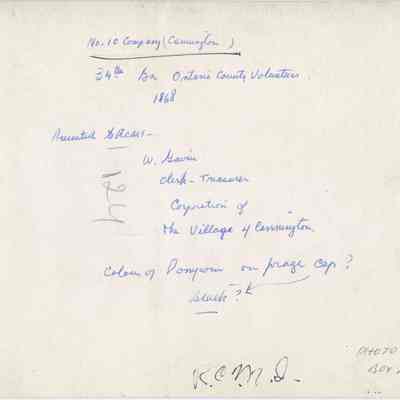 No. 10 Company (Cannington)
34th Bn Ontario County Volunteers.
1868
Presented to RCMI -
W. Gavin
Clerk - Treasurer
Corporation of
the Village of Cannington.
Colour of Pompom on forage cap?
black?
124
R.C.M.I.
PHOTO
BOX